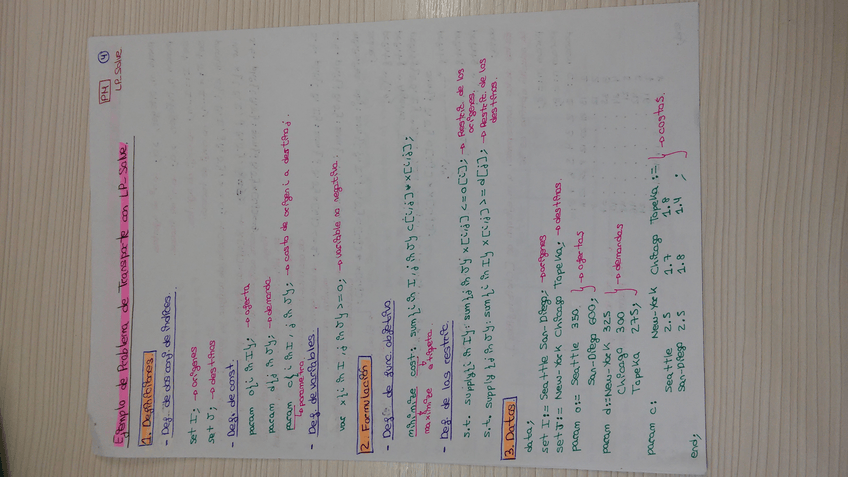 PM 4
Ejemplo de Problema de Transporte con LP-Solve LP-Solve
1. Definiciones
- Def. de los conj. de índices
set I; → orígenes
set J; → destinos
- Def. de const.
param o{i in I}; → oferta
param d{j in J}; → demanda
param c{i in I, j in J}; → costo de origen i a destino j.
→ parámetro
- Def. de variables
var x{i in I, j in J} >=0; → variable no negativa.
2. Formulación
- Def. de func. objetivo
minimize cost: sum{i in I, j in J} c[i,j]*x[i,j];
maximize etiqueta
- Def. de las restric.
s.t. supply{i in I}: sum{j in J} x[i,j] <= o[i]; → Restric de los orígenes.
s.t. supply{j in J}: sum{i in I} x[i,j] >= d[j]; → Restric de los destinos.
3. Datos
data;
set I:= Seattle San-Diego; → orígenes
set J:= New-York Chicago Topeka; → destinos.
param o:= Seattle 350
San-Diego 600; → ofertas
param d:= New-York 325
Chicago 300 → demandas
Topeka 275;
param c: New-York Chicago Topeka :=
Seattle 2.5 1.7 1.8
San-Diego 2.5 1.8 1.4 ; → costos.
end;